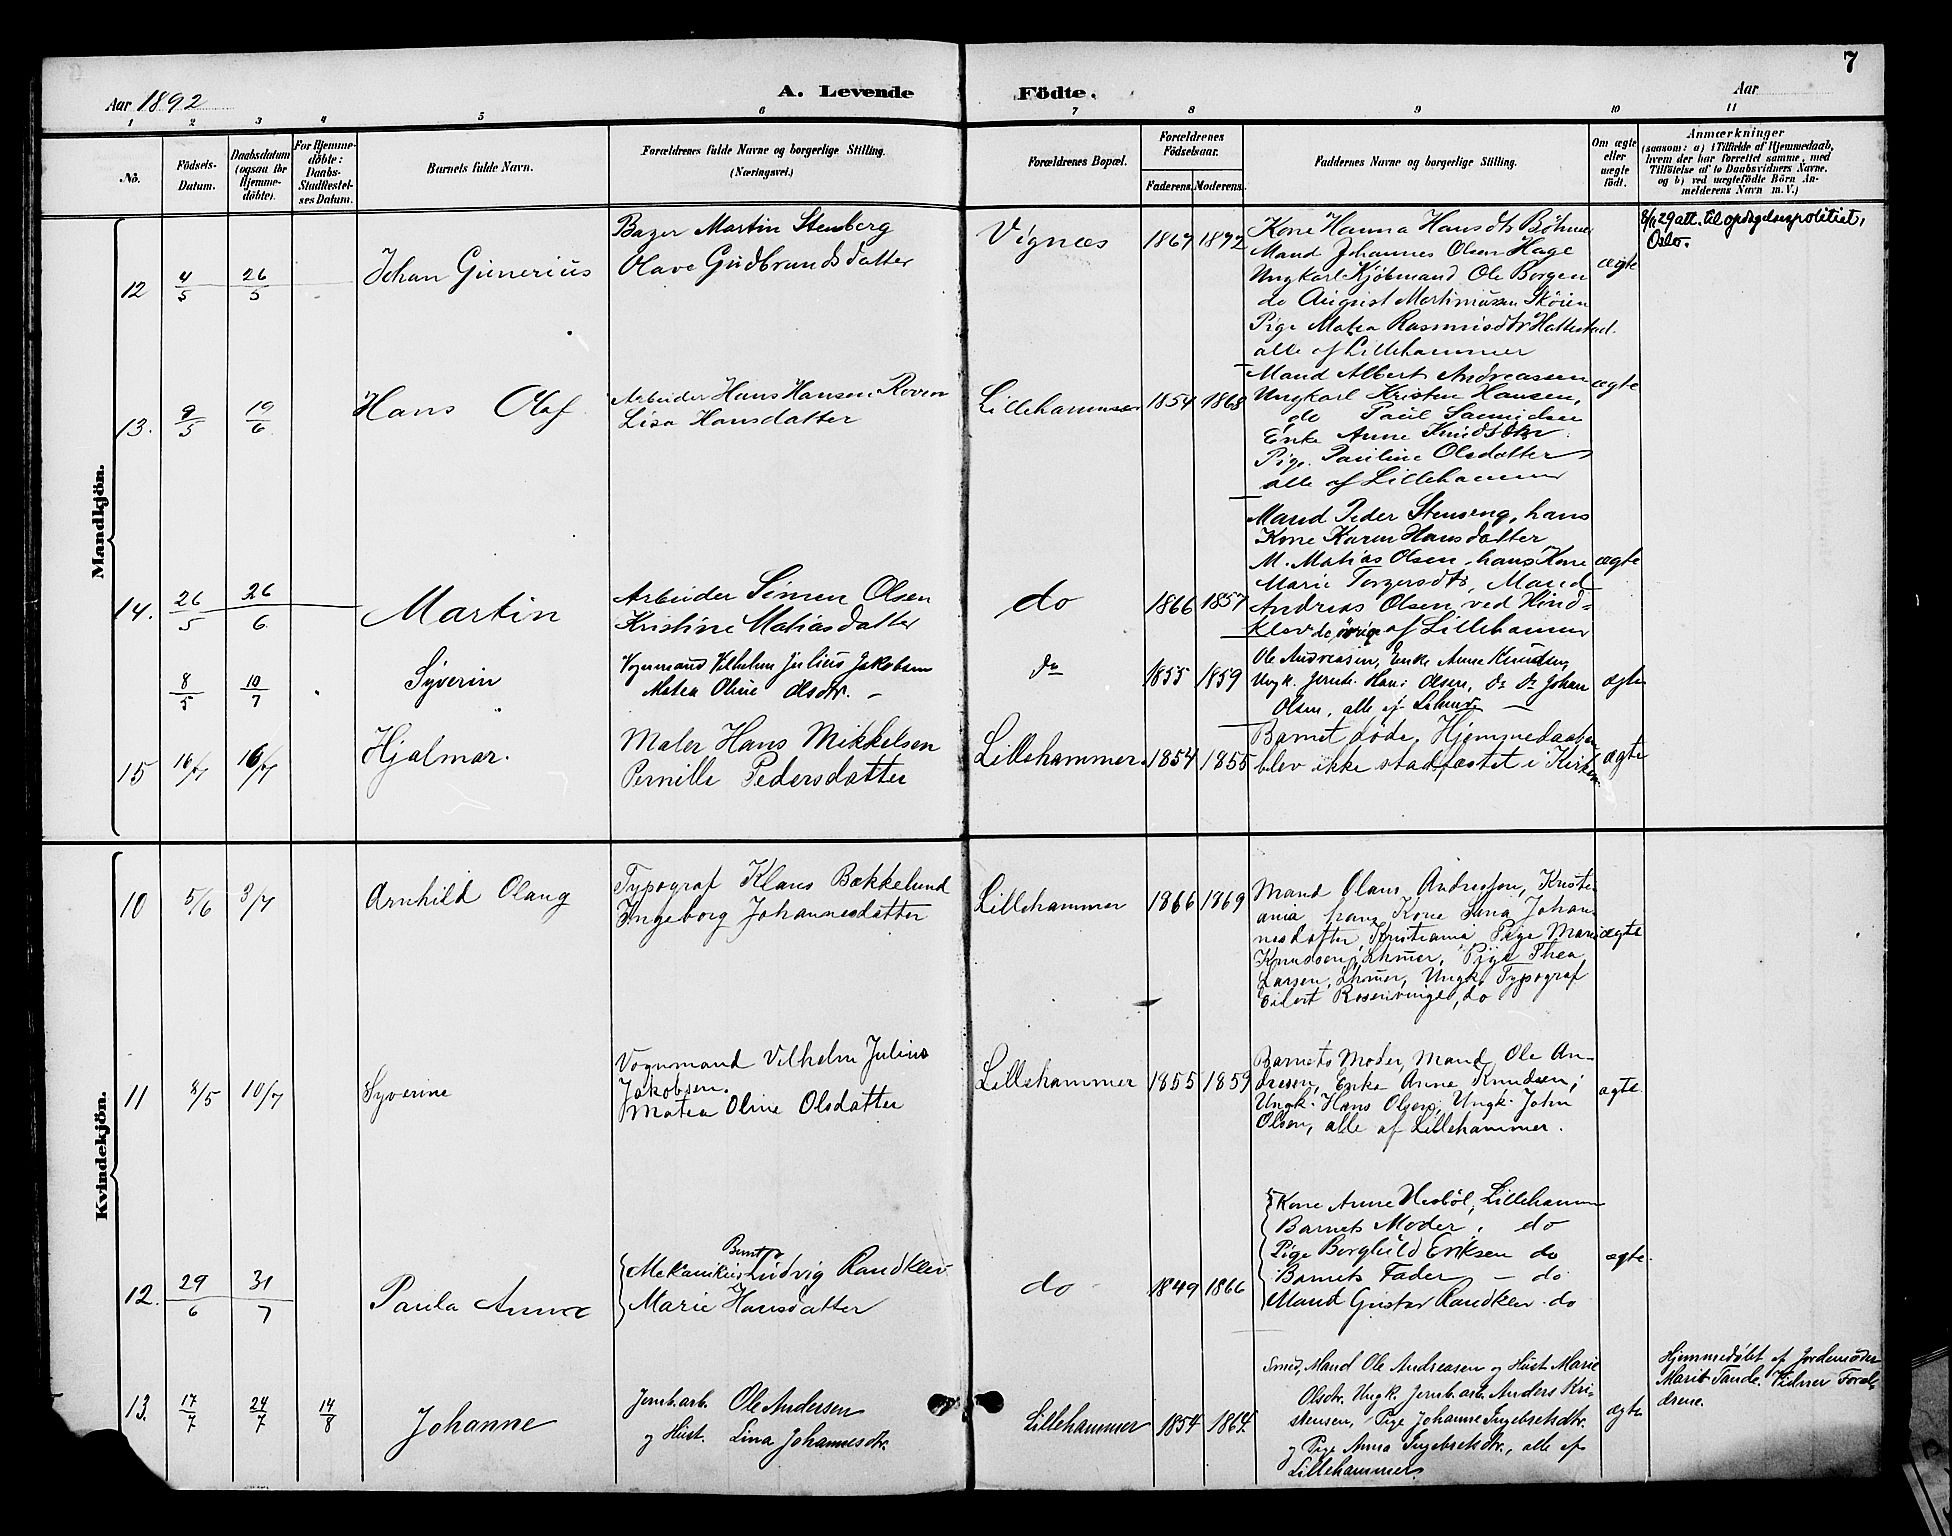 7
Aar 1892
A. Levende Födte.
Aar
1 2 3 4 5 6 7 8 9 10 11
No.
Födsels-
Datum.
Daabsdatum
(ogsaa for
Hjemme-
döbte).
For Hjemme-
döbte:
Daabs-
Stadfæstel-
ses Datum.
Barnets fulde Navn.
Forældrenes fulde Navne og borgerlige Stilling.
(Næringsvei.)
Forældrenes Bopæl.
Forældrenes
Födselsaar.
Faderens. Moderens.
Faddernes Navne og borgerlige Stilling.
Om ægte
eller
uægte
födt.
Anmærkninger
(saasom: a) i Tilfælde af Hjemmedaab,
hvem der har forrettet samme, med
Tilföielse af to Daabsvidners Navne.
og b) ved uægtefödte Börn An-
melderens Navn m. V.)
Mandkjön.
12
4/5
26/5
Johan Gunerius
Bager Martin Stenberg
Olave Gudbrandsdatter
Vignæs
1867 1872
Kone Hanna Hansdtr Böhmer
Mand Johannes Olsen Hage
Ungkarl Kjöbmand Ole Borgen
do August Martinusen Sköien
Pige Matea Rasmusdtr Hattestad.
alle af Lillehammer
ægte
8/11 29 att. til opdagelsespolitiet,
Oslo.
13.
9/5
19/6
Hans Olaf
Arbeider Hans Hansen Roven
Lisa Hansdatter
Lillehammer
1854 1868
Mand Albert Andreassen
Ungkarl Kristen Hansen,
do Paul
Enke Anne Knudsdtr.
Pige. Pauline Olsdatter
alle af Lillehammer
ægte
14.
26/5
26/6
Martin
Arbeider Simen Olsen
Kristine Matiasdatter
do
1866 1857
Mand Peder Stenseng, hans
Kone Karen Hansdatter
M. Matias Olsen, hans Kone
Marie Torgersdtr, Mand
Andreas Olsen ved Hind-
klev de övrige af Lillehammer
ægte
8/5
10/7
Syverin
Vognmand Vilhelm Julius Jakobsen
Matea Oline Olsdtr. –
do
1855 1859
Ole Andreasen, Enke Anne Knudsen,
Ungk. Hans Olsen, do do Johan
Olsen, alle af
ægte
15
16/7
16/7
Hjalmar.
Maler Hans Mikkelsen
Pernille Pedersdatter
Lillehammer.
1854 1855
Barnet döde, Hjemmedaaben
blev ikke stadfæstet i Kirken
ægte
Kvindekjön.
10
5/6
3/7
Arnhild Olaug
Typograf Klaus Bækkelund
Ingeborg Johannesdatter
Lillehammer
1866 1869
Mand Olaus Andresen, Kristi-
ania, hans Kone Lina Johan-
nesdatter, Kristiania Pige Marie
Knudsen, Lhmer, Pige Thea
Larsen, Lhmer, Ungk. Typograf
Eilert Rosenvinge, do
ægte
11
8/5
10/7
Syverine
Vognmand Vilhelm Julius
Jakobsen.
Matea Oline Olsdatter
Lillehammer
1855 1859
Barnets Moder, Mand Ole An-
dresen, Enke Anne Knudsen,
Ungk. Hans Olsen, Ungk. John
Olsen, alle af Lillehammer.
ægte.
12.
29/6
31/7
Paula Anna
Mekanikus Bernt Ludvig Randklev
Marie Hansdatter
do
1849 1866
Kone Anne Lillehammer
Barnets Moder. do
Pige Borghild Eriksen do
Barnets Fader – do
Mand Gustav Randklev do
ægte.
13.
17/7
24/7
14/8
Johanne
Jernb.arb. Ole Andersen
og Hust. Lina Johannesdtr.
Lillehammer
1854 1864
Smed, Mand Ole Andreasen og Hust Marie
Olsdtr. Ungk. Jernb.arb. Anders Kri-
stensen, Pige Johanne Ingebretsdtr.
og Pige Anna Ingebretsdtr., alle af
Lillehammer
ægte
Hjemmedöbt af Jordemoder
Marit Tande. Vidner Foræl-
drene.